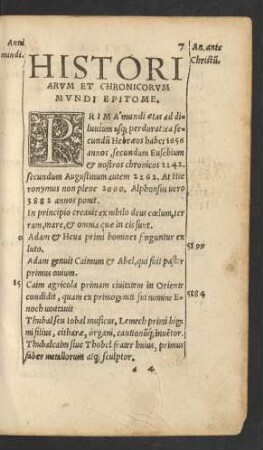 Anni
mundi.
7
An. ante
Christũ.
HISTORI
ARVM ET CHRONICORVM
MVNDI EPITOME.
PRIMA mundi ætas ad di-
luuium usq; perdurat: ea se-
cundũ Hebræos habet 1656
annos, secundum Eusebium
& nostros chronicos 2242.
secundum Augustinum autem 2262. At Hie
ronymus non plene 2000. Alphonsus uero
3882 annos ponit.
In principio creauit ex nihilo deus cœlum, ter
ram, mare, & omnia quæ in eis sunt.
0 Adam & Heua primi homines finguntur ex 5199
luto.
Adam genuit Caimum & Abel, qui fuit pastor
primus ouium.
15 Caim agricola primam ciuitatem in Oriente 5184
condidit, quam ex primogeniti sui nomine E-
noch uocauit
Thubal seu Iobal musicus, Lamech primi biga
mi filius, citharæ, organi, cantionũq; inuẽtor.
Thubalcaim siue Thobel frater huius, primus
faber metallorum atq; sculptor.
a 4